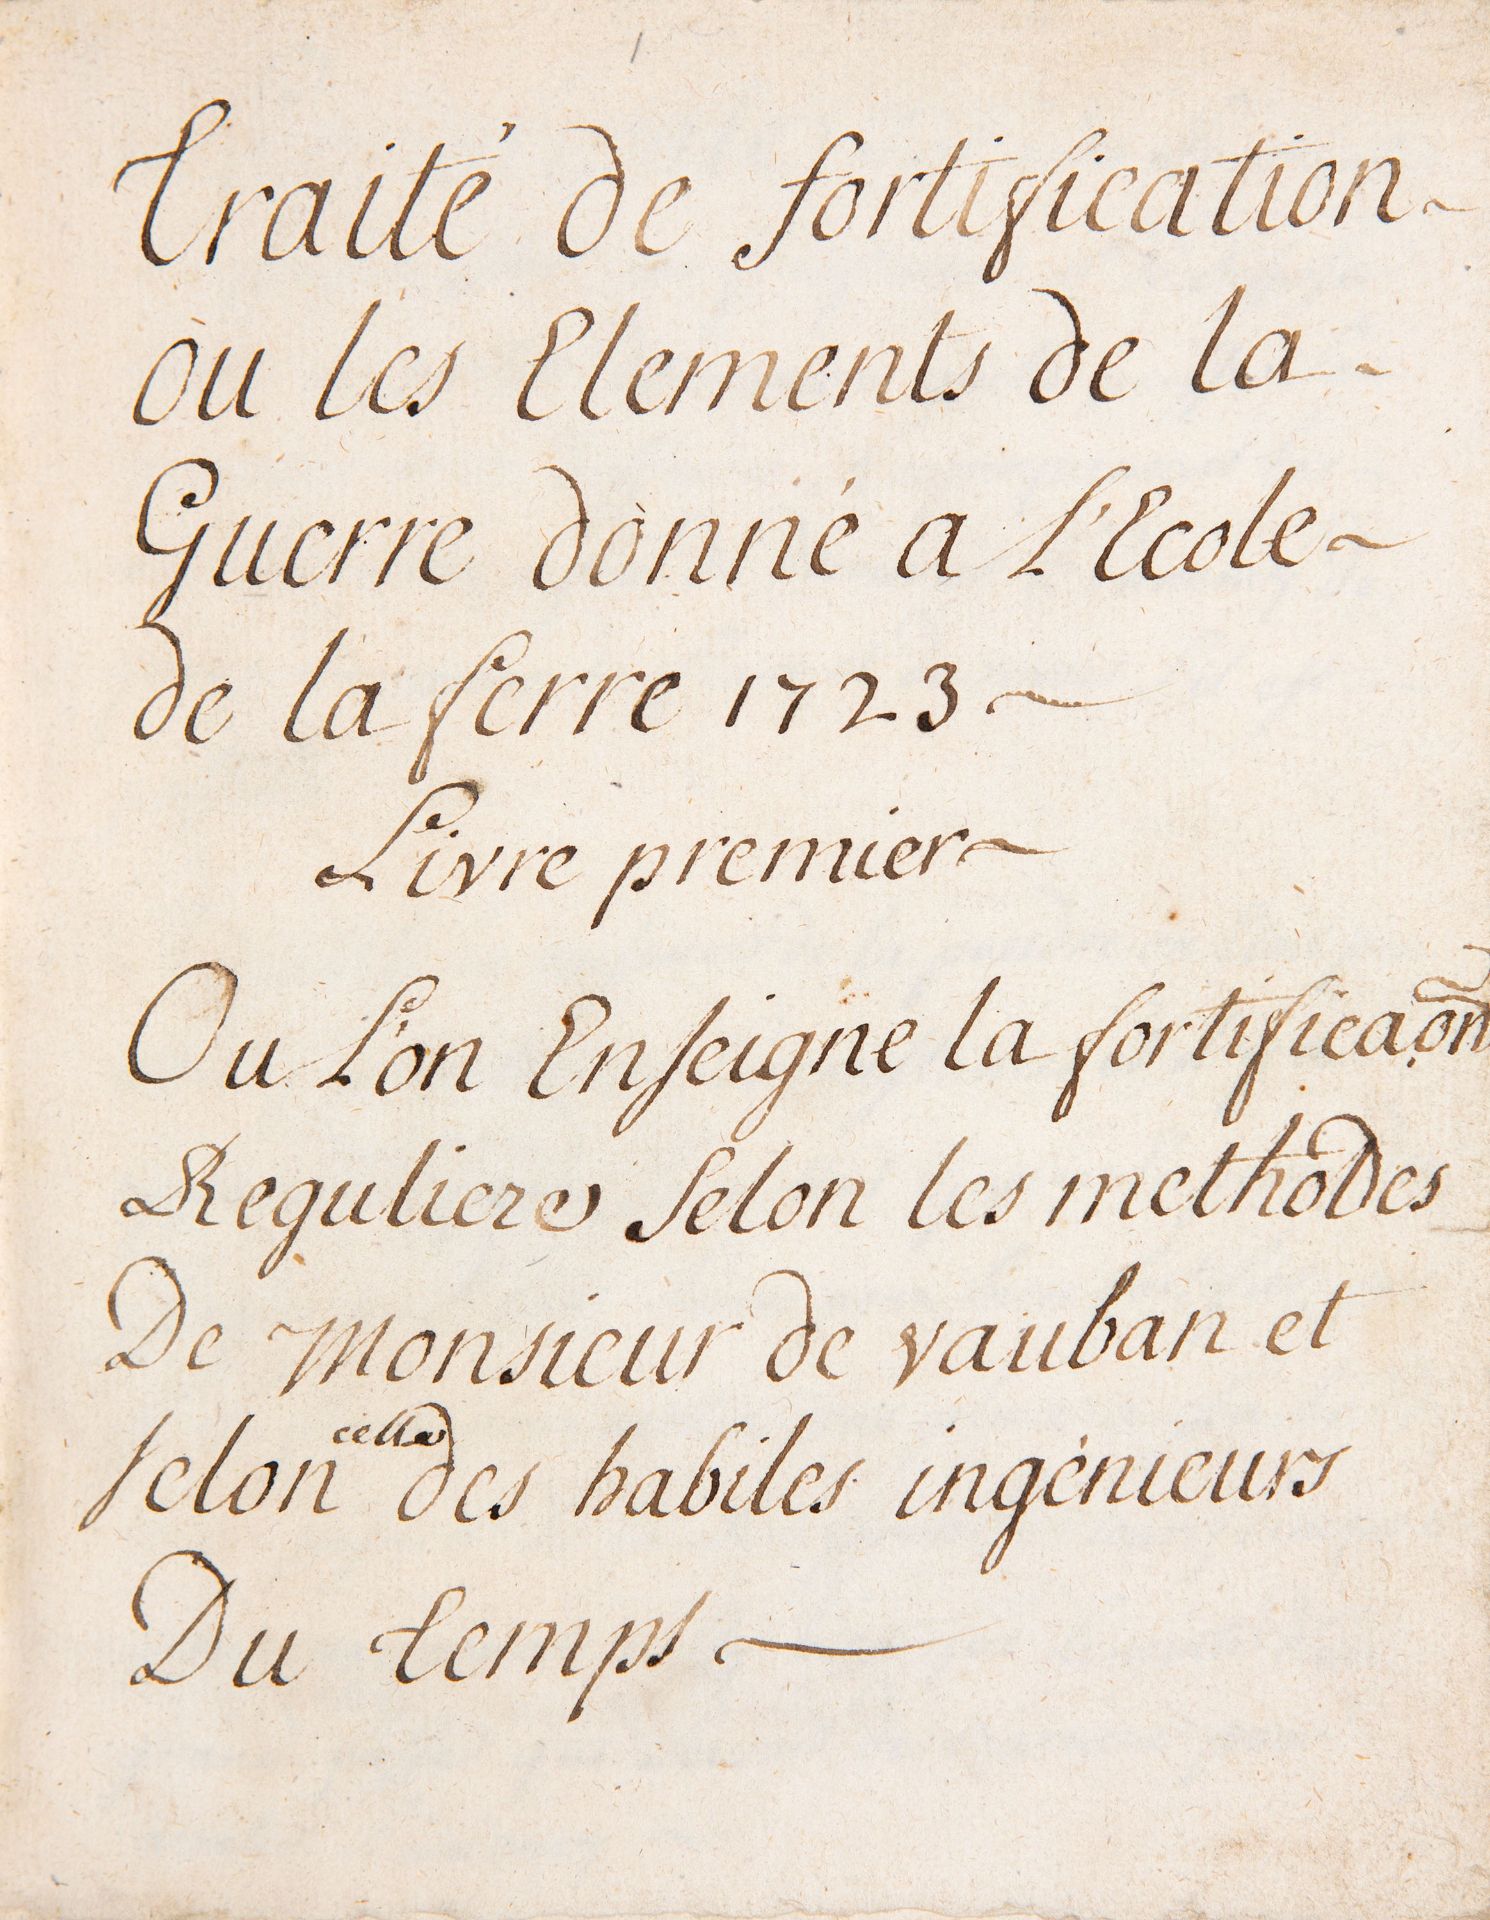 Traité de fortification
ou les Elements de la
Guerre donné a L'Ecole
de la ferre 1723
Livre premier
Ou L'on Enseigne la fortificaon
Reguliere Selon les methodes
De Monsieur de vauban et
selon celle des habiles ingénieurs
Du temps